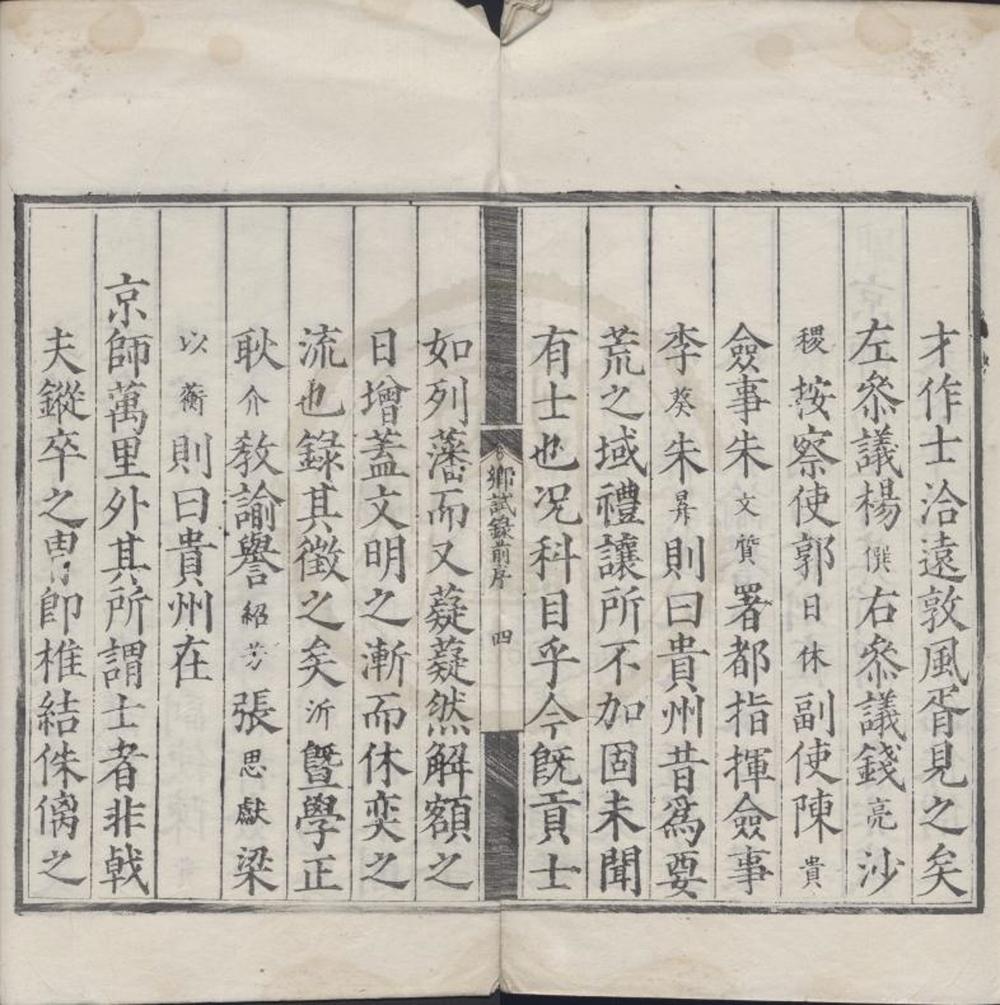 才作士洽遠敦風胥見之矣
左叅議楊僎右叅議錢亮沙
稷按察使郭日休副使陳貴
僉事朱文質署都指揮僉事
李葵朱昇則曰貴州昔為要
荒之域禮讓所不加固未聞
有士也况科目乎今既貢士
鄉試錄前序 四
如列藩而又薿薿然解額之
日增蓋文明之漸而休奕之
流也錄其徵之矣沂暨學正
耿介教諭譽紹芳張思獻梁
以蘅則曰貴州在
京師萬里外其所謂士者非戟
夫鏦卒之冑卽椎結侏㒧之